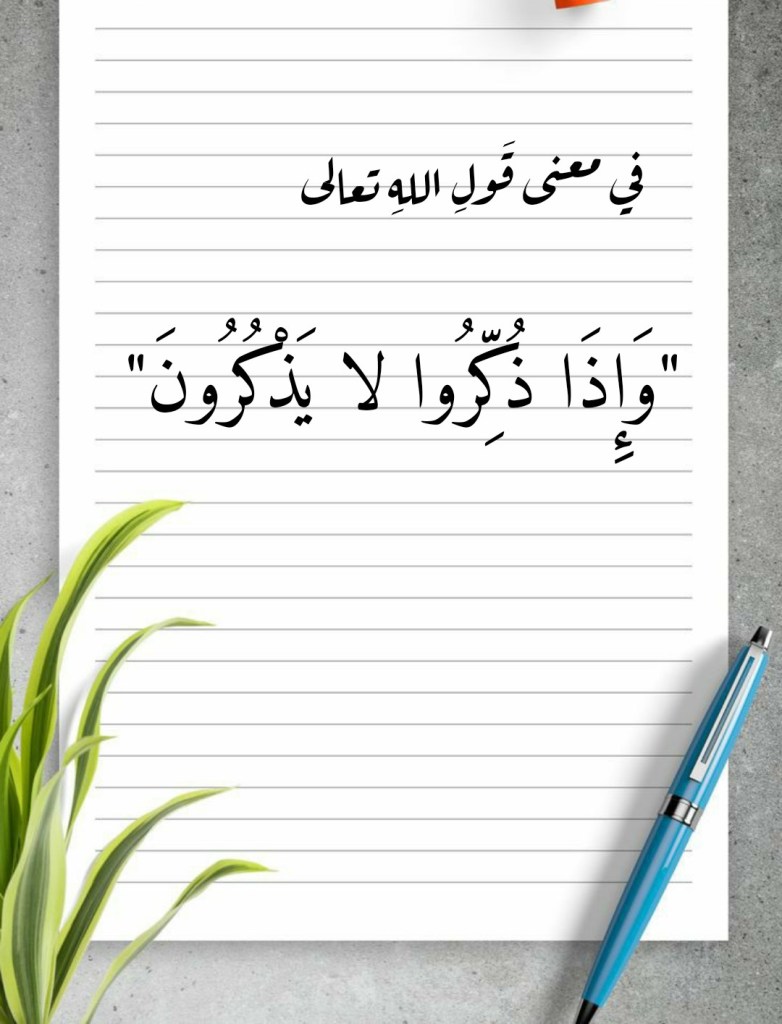 في معنى قَولِ اللهِ تعالى
"وَإِذَا ذُكِّرُوا لا يَذْكُرُونَ"